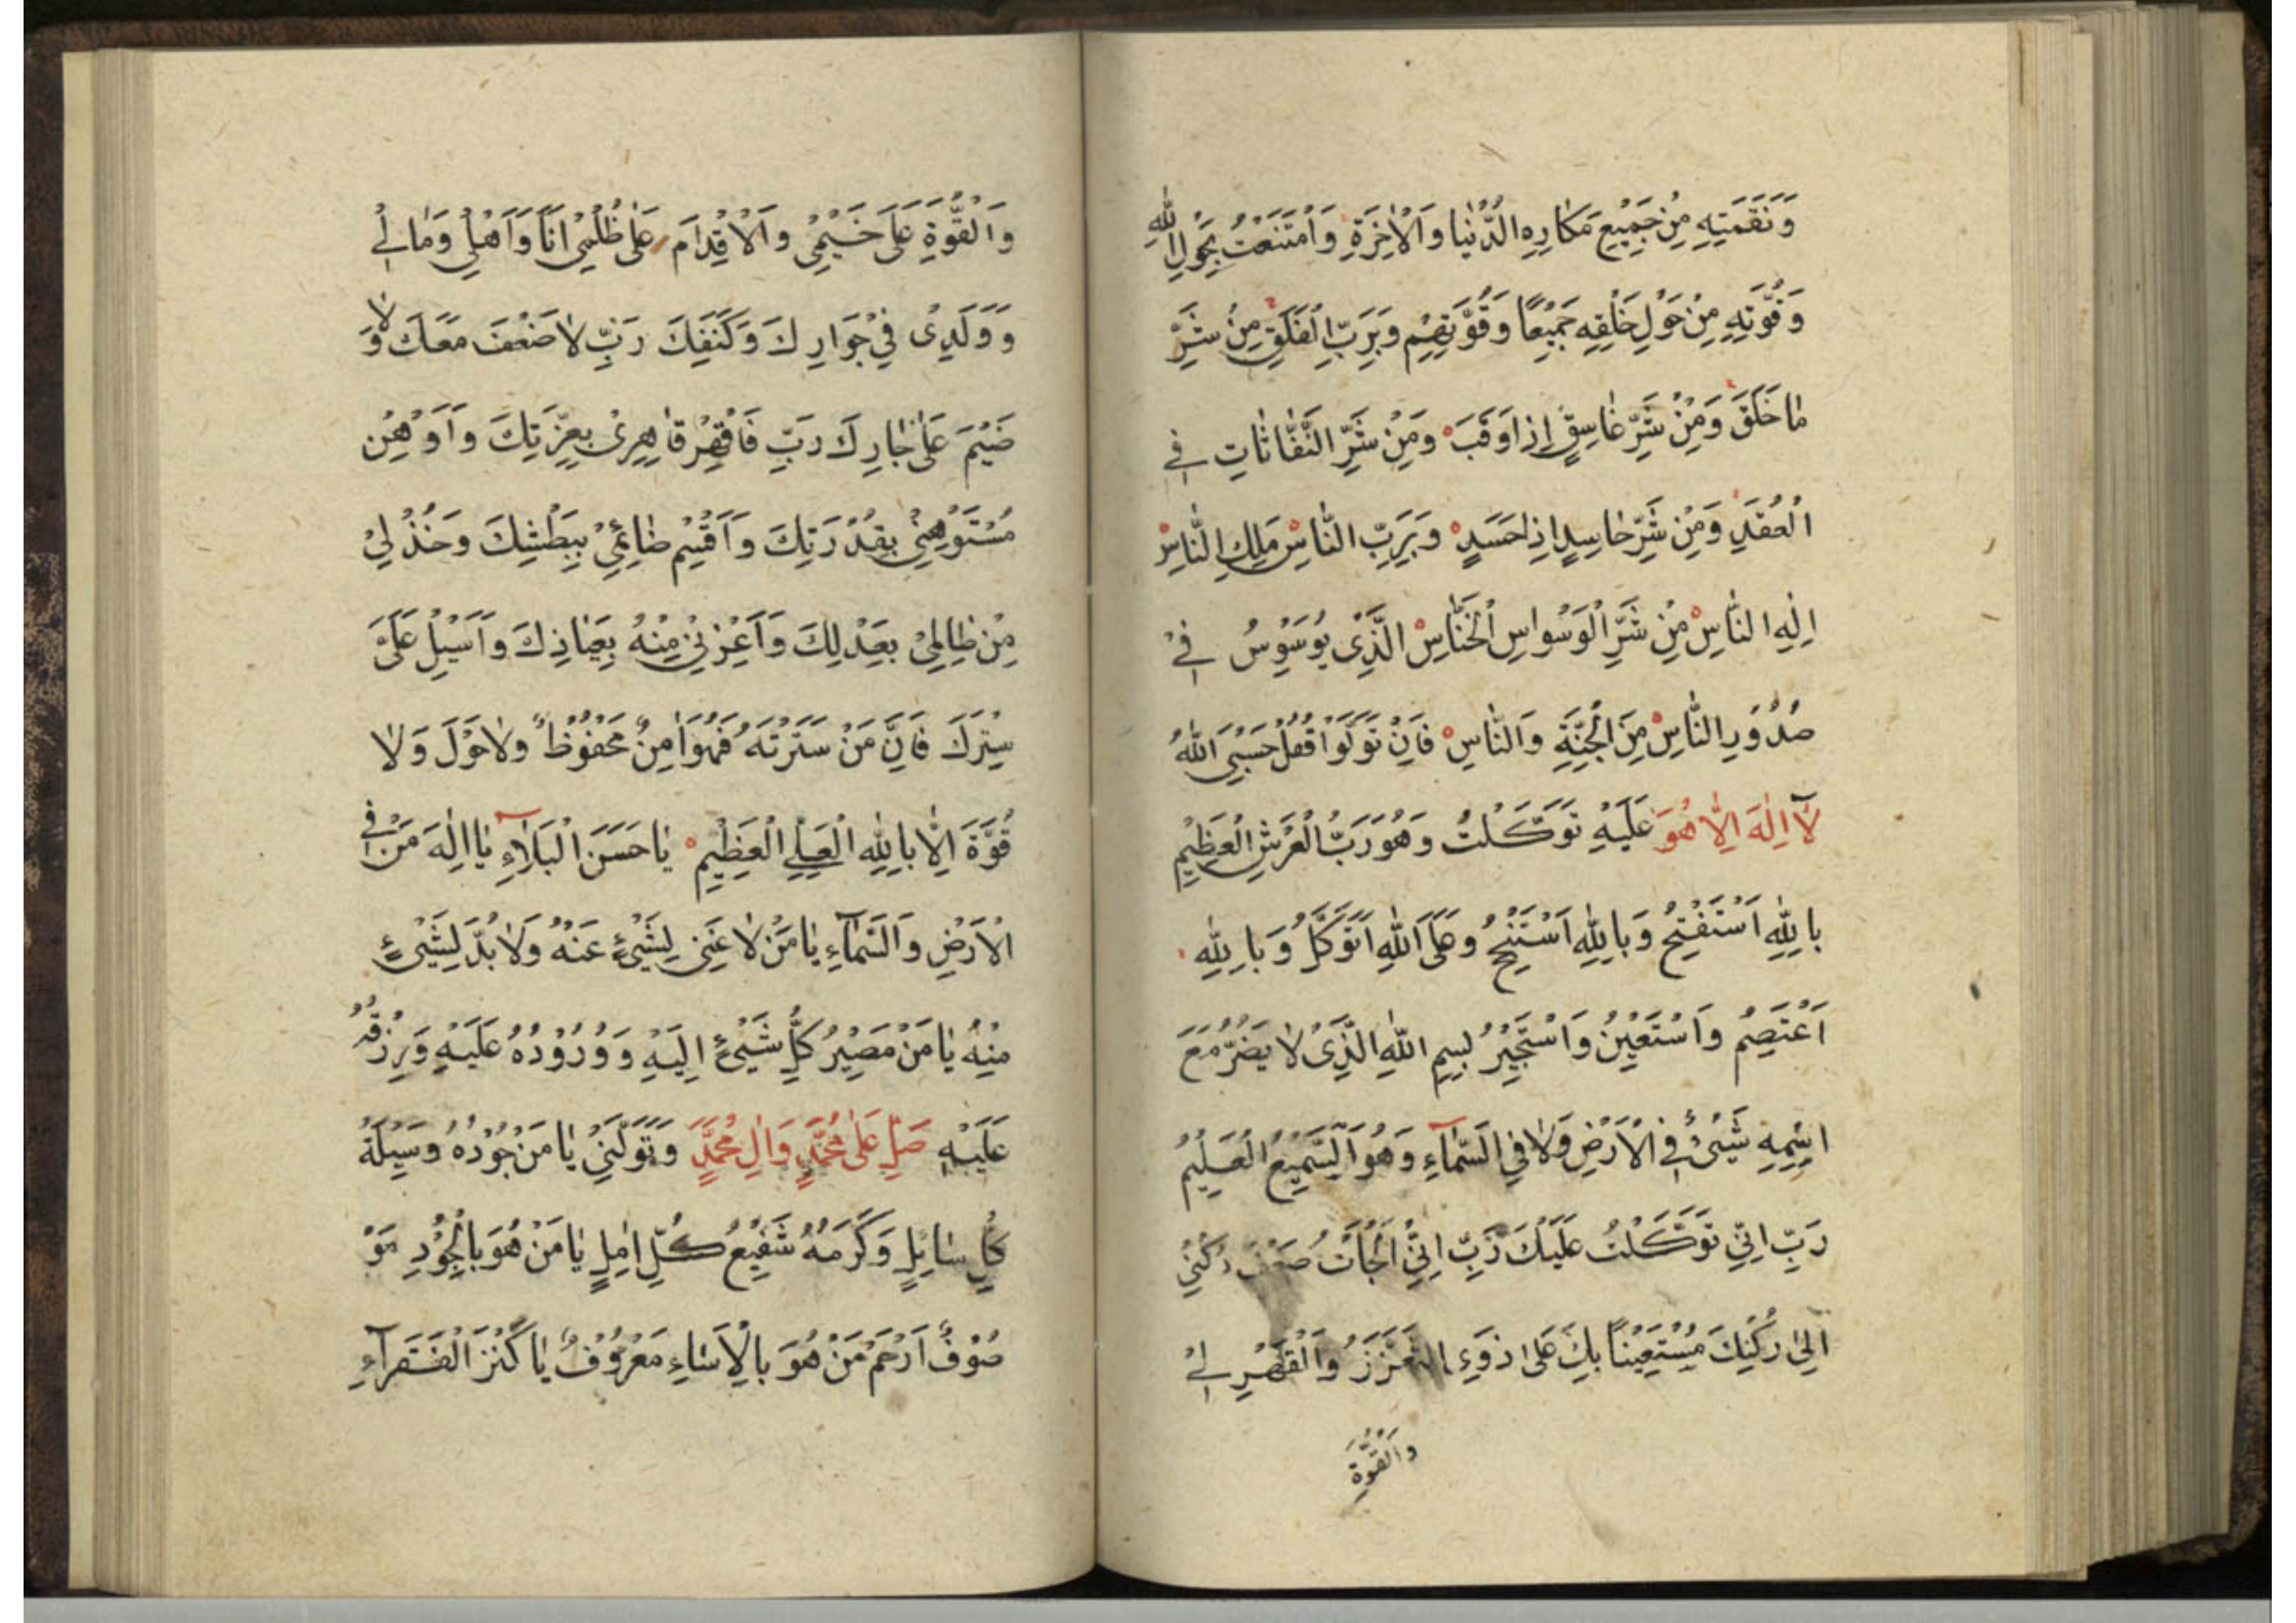 وَنَقَمَتِهِ مِنْ جَمِيعِ مَكَارِهِ الدُّنْيَا وَالْاٰخِرَةِ وَامْتَنَعْتُ بِحَوْلِ اللّٰهِ
وَقُوَّتِهِ مِنْ حَوْلِ خَلْقِهِ جَمِيْعًا وَقُوَّتِهِمْ وَبِرَبِّ الْفَلَقِ مِنْ شَرِّ
مَا خَلَقَ وَمِنْ شَرِّ غَاسِقٍ اِذَا وَقَبَ وَمِنْ شَرِّ النَّفَّاثَاتِ فِي
الْعُقَدِ وَمِنْ شَرِّ حَاسِدٍ اِذَا حَسَدٍ وَبِرَبِّ النَّاسِ مَلِكِ النَّاسِ
اِلٰهِ النَّاسِ مِنْ شَرِّ الْوَسْوَاسِ الْخَنَّاسِ الَّذِى يُوَسْوِسُ فِيْ
صُدُوْرِ النَّاسِ مِنَ الْجِنَّةِ وَالنَّاسِ فَاِنْ تَوَلَّوْا فَقُلْ حَسْبِيَ اللّٰهُ
لَآ اِلٰهَ اِلَّا هُوَ عَلَيْهِ تَوَكَّلْتُ وَهُوَ رَبُّ الْعَرْشِ الْعَظِيْمِ
بِاللّٰهِ اَسْتَفْتِحُ وَبِاللّٰهِ اَسْتَنْجِحُ وَعَلَى اللّٰهِ اَتَوَكَّلُ وَبِاللّٰهِ
اَعْتَصِمُ وَاَسْتَعِيْنُ وَاَسْتَجِيْرُ بِسْمِ اللّٰهِ الَّذِىْ لَا يَضُرُّ مَعَ
اسْمِهِ شَيْئٌ فِي الْاَرْضِ وَلَا فِي السَّمَآءِ وَهُوَ السَّمِيْعُ الْعَلِيْمُ
رَبِّ اِنِّيْ تَوَكَّلْتُ عَلَيْكَ رَبِّ اِنِّيْ اَلْجَأْتُ ضَعْفَ رُكْنِيْ
اِلٰى رُكْنِكَ مُسْتَعِيْنًا بِكَ عَلٰى ذَوِي التَّعَزُّزِ وَالْقَهْرِ لِيْ
وَالْقُوَّةِ
وَالْقُوَّةِ عَلَى خَيْمِيْ وَالْاِقْدَامِ عَلٰى ظُلْمِيْ اَنَا وَاَهْلِيْ وَمَالِيْ
وَوَلَدِىْ فِيْ جِوَارِكَ وَكَنَفِكَ رَبِّ لَا ضَعْفَ مَعَكَ وَلَا
ضَيْمَ عَلٰى جَارِكَ رَبِّ فَاقْهِرْ قَاهِرِىْ بِعِزَّتِكَ وَاَوْهِنْ
مُسْتَوْهِنِيْ بِقُدْرَتِكَ وَاَقْسِمْ ضَائِمِيْ بِبَطْشِكَ وَخُذْ لِيْ
مِنْ ظَالِمِيْ بِعَدْلِكَ وَاَعِزْنِيْ مِنْهُ بِعِيَاذِكَ وَاَسْبِلْ عَلَيَّ
سِتْرَكَ فَاِنَّ مَنْ سَتَرْتَهُ فَهُوَ اٰمِنٌ مَحْفُوْظٌ وَلَا حَوْلَ وَلَا
قُوَّةَ اِلَّا بِاللّٰهِ الْعَلِيِّ الْعَظِيْمِ يَا حَسَنَ الْبَلَآءِ يَا اِلٰهَ مَنْ فِي
الْاَرْضِ وَالسَّمَآءِ يَا مَنْ لَا غِنٰى لِشَيْءٍ عَنْهُ وَلَا بُدَّ لِشَيْءٍ
مِنْهُ يَا مَنْ مَصِيْرُ كُلِّ شَيْءٍ اِلَيْهِ وَوُرُوْدُهُ عَلَيْهِ وَرِزْقُهُ
عَلَيْهِ صَلِّ عَلٰى مُحَمَّدٍ وَاٰلِ مُحَمَّدٍ وَتَوَلَّنِيْ يَا مَنْ جُوْدُهُ وَسِيْلَةُ
كُلِّ سَائِلٍ وَكَرَمُهُ شَفِيْعُ كُلِّ اٰمِلٍ يَا مَنْ هُوَ بِالْجُوْدِ مَوْ
صُوْفٌ اَرْحَمْ مَنْ هُوَ بِالْاِسَاءِ مَعْرُوْفٌ يَا كَنْزَ الْفُقَرَآءِ